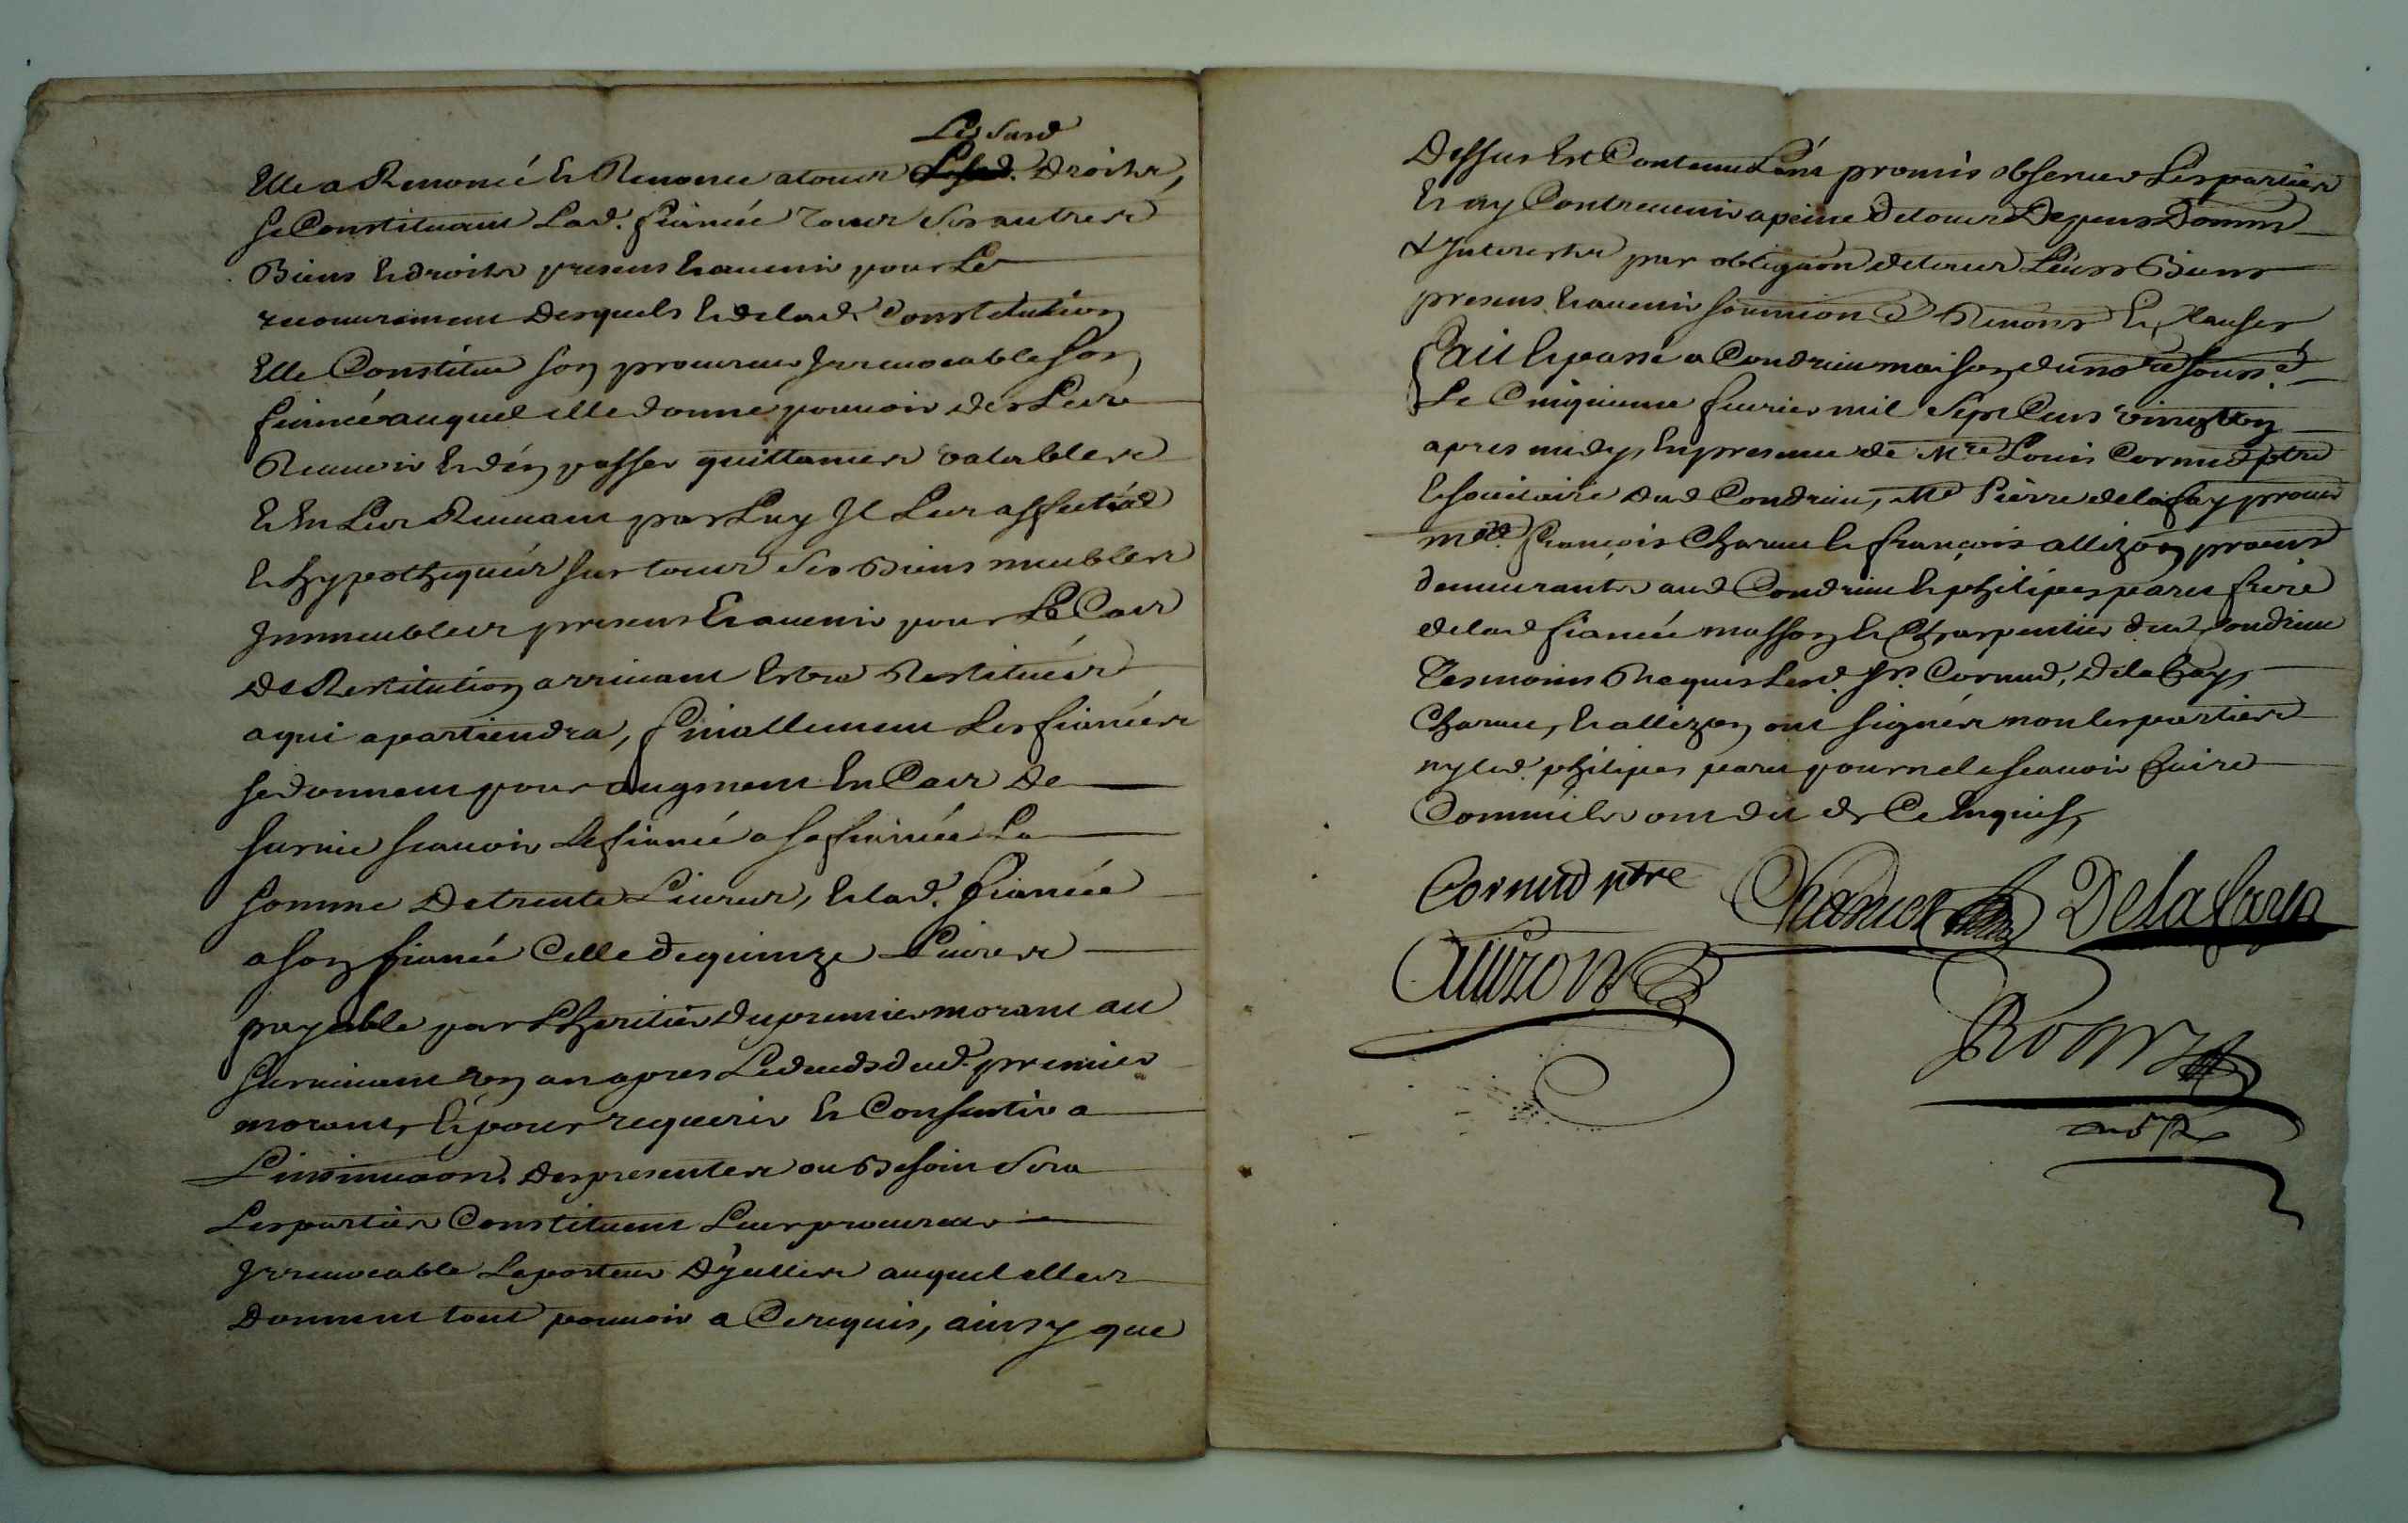 Lesd surd
Elle a Renoncé & Renonce a tous Droits,
se Constituant Lad. fiancée tous ses autres
Biens & droits presens & avenir pour Le
recouvrement desquels & delad Constitution
Elle Constitue son procureur Irrevocable son
fiancé auquel elle donne pouvoir des Leve
Recevoir & d'en passer quittances valables
& En Les Recevant par Luy Il Les assectées
& hypothequées sur tous ses Biens meubles
Immeubles presens & avenir pour Le Cas
De Restitution arrivant Estre Restituées
a qui apartiendra, finallement Les fiancées
se donnent pour augment En Cas De
survie scauoir Le fiancé a sa fiancée La
somme De trente Liures, & lad. fiancée
a son fiancé Celle de quinze Liures
payable par L'heritier du premier morant au
suruiuant un an apres Le deceds dud. premier
morant, & pour requerir & Consentir a
L'insinuaon. Des presentes ou Besoin sera
Les parties Constituent Leur procureur
Irrevocable Le porteur D'ycelles auquel elles
Donnent tout pouvoir a Ce requis, ainsy que
Dessus Est Contenu L'ont promis observer Les parties
& ny Contreuenir a peine de tous Depens Domm
& Interests par obligaon de tous Leurs Biens
presens & avenir soumion & Renons & Clauses
fait & passé a Condrieu maison du nore souss.é
Le Cinquieme feurier mil sept Cens vingt
apres midy, En presence de Mre Louis Cornud ptre
& soucitaire dud Condrieu, Me Pierre delafay procur
François Charuet & françois allizon procur
demeurants aud Condrieu & philipes paret frere
delad fiancée masson & Charpentier dud Condrieu
Tesmoins Requis Lesd. Sr. Cornud, Delafay,
Charuet, & allizon ont signés non les parties
ny led. philipes paret pour ne le scauoir faire
Comme ils ont dit de Ce Enquis,
Cornud ptre Delafaya
Allizon